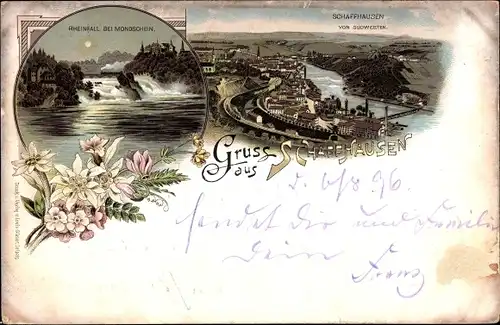 RHEINFALL BEI MONDSCHEIN.
SCHAFFHAUSEN
VON SÜDWESTEN.
Gruss
aus SCHAFFHAUSEN
6/8 96
sendet dir und Familie
Dein
Franz